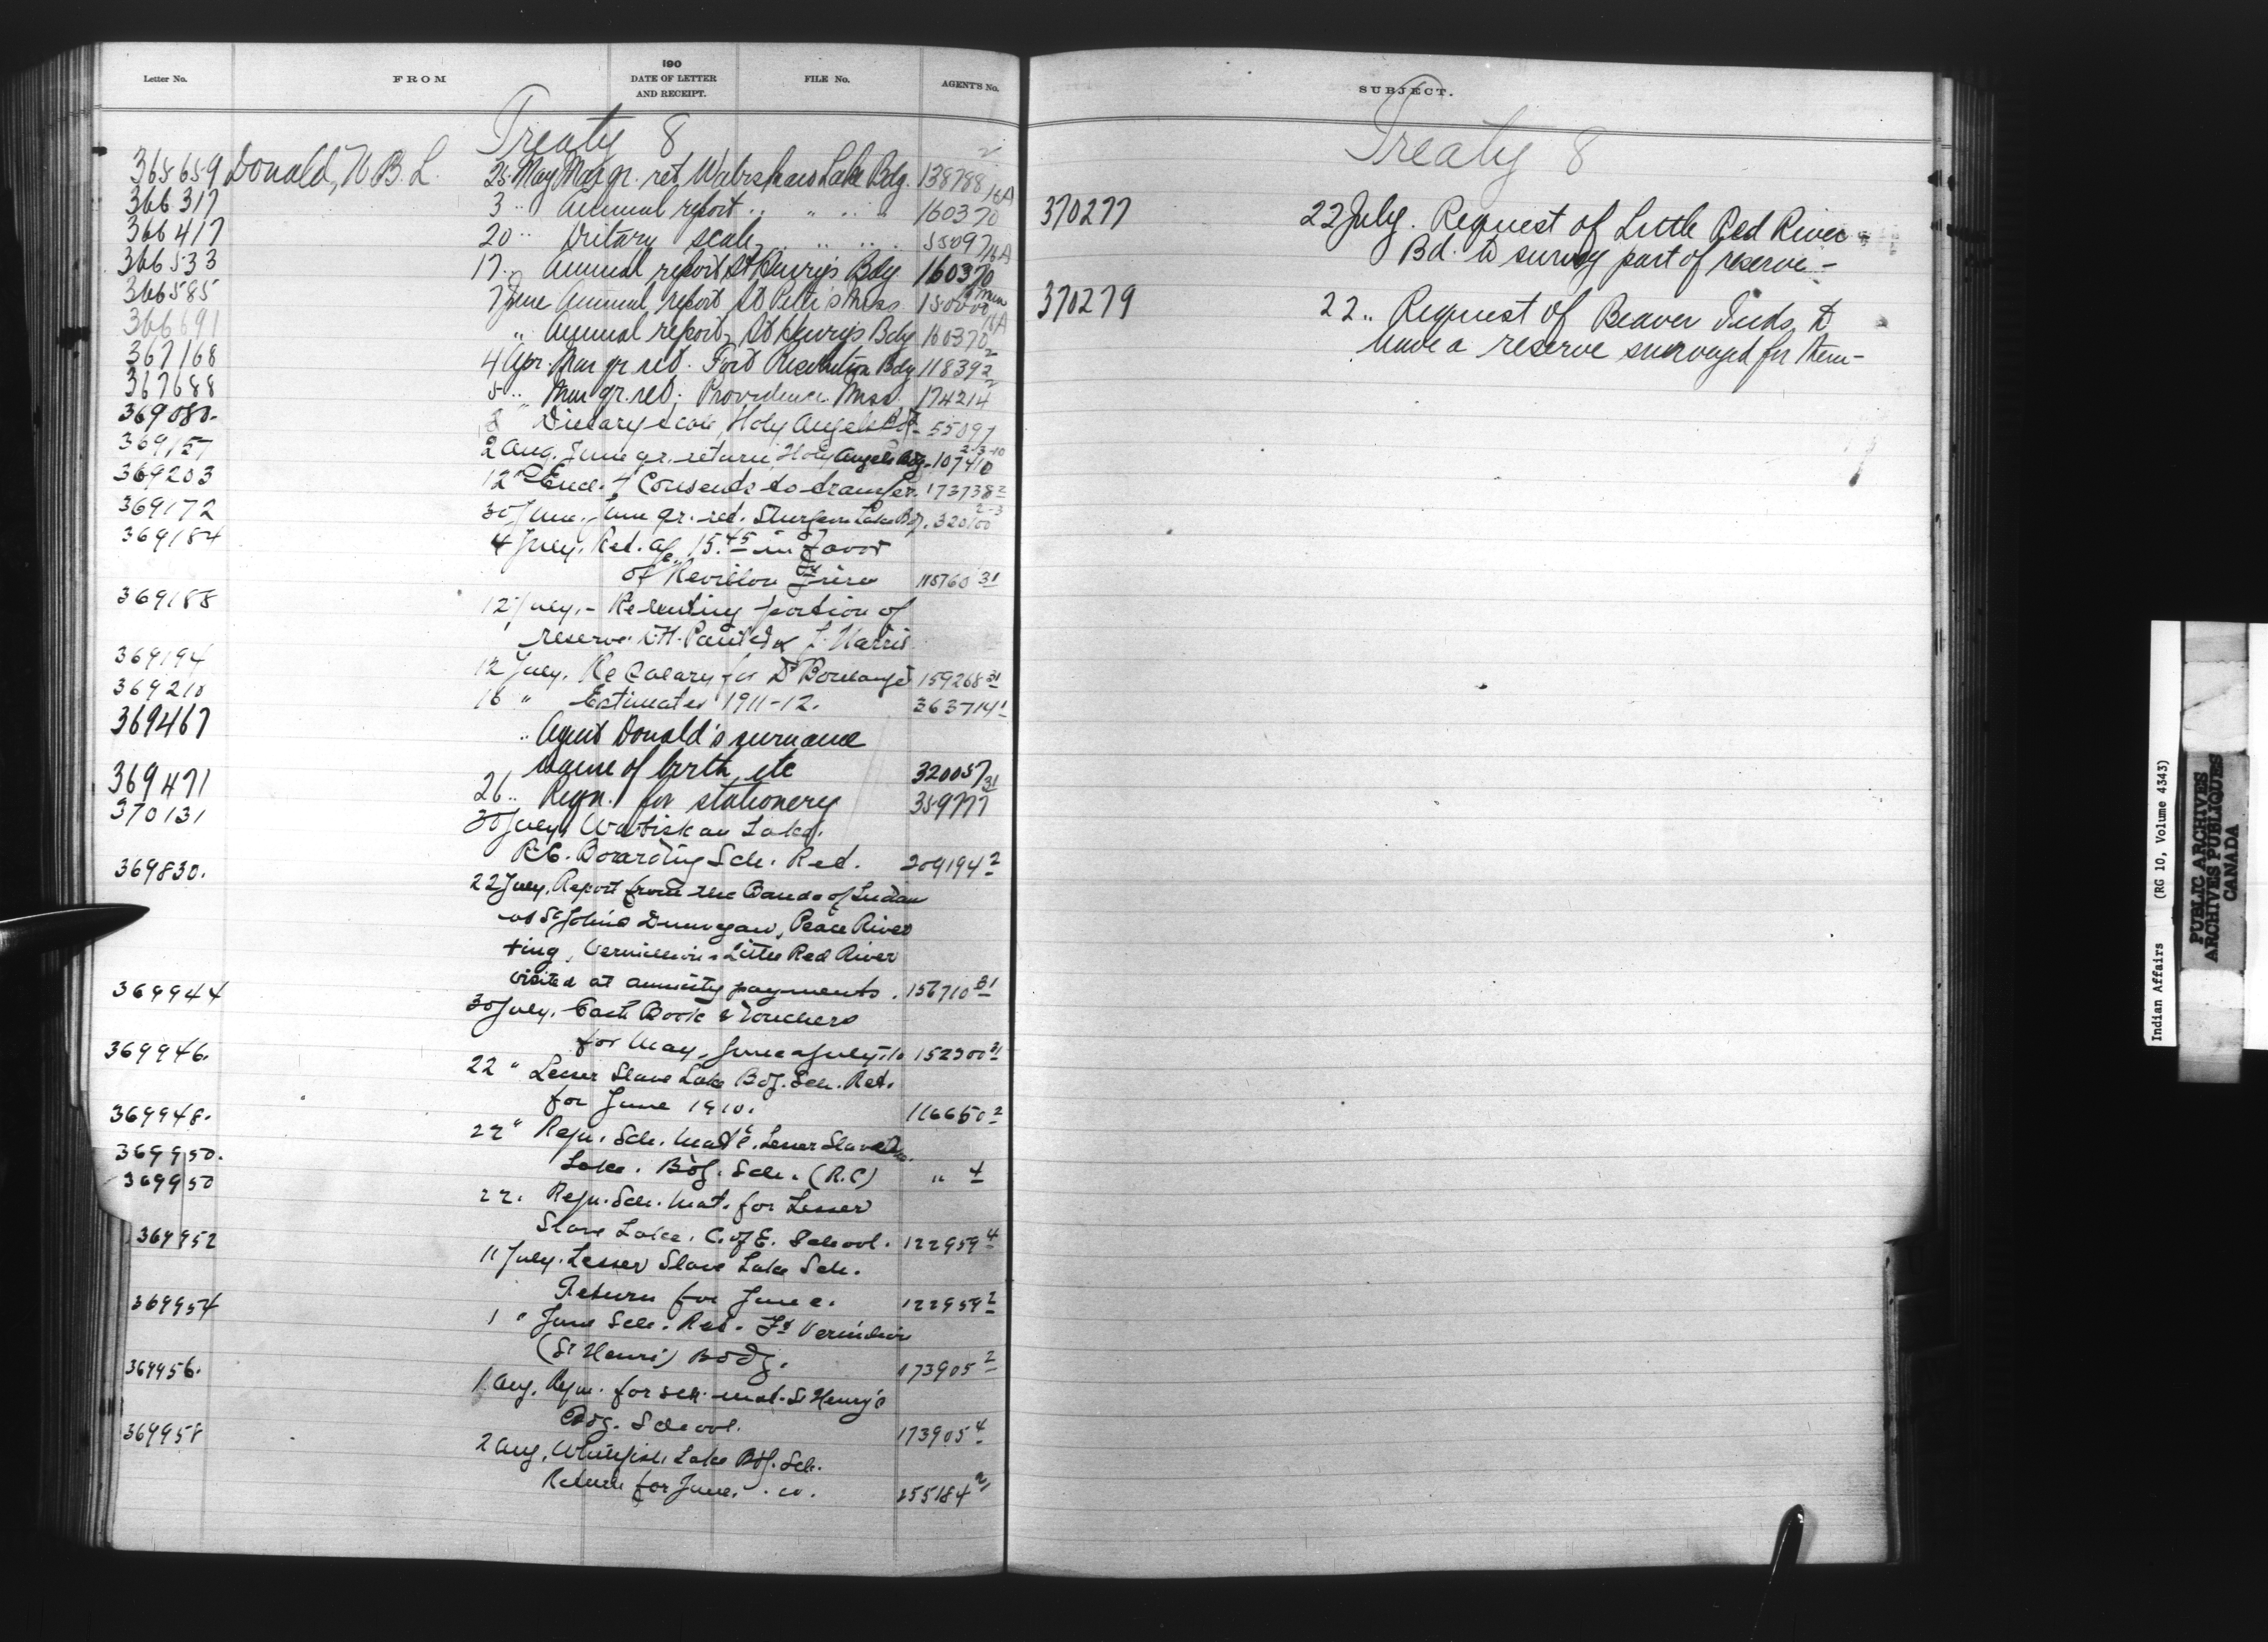 Letter No. FROM 190 DATE OF LETTER AND RECEIPT. FILE No. AGENT'S No.
Treaty 8
365659 Donald, W.B.L. 25 May Mar qr. ret Wabiskaw Lake Bdg. 138788 2
366317 3 " Annual report " " " " 160370 16A
366417 20 " Dietary scale " " " " 55097
366533 17 " Annual report St Henry's Bdg 160370 16A
366585 7 June Annual report St Peter's Miss.
366691 " Annual report, St Henry's Bdg 160370 16A
367168 4 Apr. Mar qr ret. Fort Resolution Bdg 118392 2
367688 5 " Mar qr. ret. Providence Miss. 174214 2
369080. Dietary scale, Holy Angels 55097
369157 2 Aug. June qr. return, Holy Angels Bdg. 107410 2-3-10
369203 12 " Encl. 4 Consents to transfer. 173738 2
369172 30 June. June qr. ret. Sturgeon Lake Bdg. 320100 2-3
369184 4 July. Ret. a/c 15.45 in favor
of Revillon Freres 115760 31
369188 12 July. - Re renting portion of
reserve
369194 12 July. Re Salary for Dr Boulanger 159268 31
369210 16 " Estimates 1911-12. 363714 1
369467 " Agent Donald's surname
name of birth, etc 320057 31
369471 26 " Reqn. for stationery 359777
370131 30 July, Wabiskaw Lake,
R.C. Boarding Sch. Ret. 209194 2
369830. 22 July, Report from the Bands of Indian
at St Johns Dunvegan, Peace River
+ing, Vermillion & Little Red River
visited at annuity payments. 156710 31
369944 30 July. Cash Book & Vouchers
for May, June & July-10 152300 31
369946. 22 " Lesser Slave Lake Bdg. Sch. Ret.
for June 1910. 116650 2
369948. 22 " Reqn. Sch. Mat'l. Lesser Slave
Lake. Bdg. Sch. (R.C) " 4
369950.
369950 22. Reqn. Sch. Mat. for Lesser
Slave Lake. C. of E. School. 122959 4
369952 11 July. Lesser Slave Lake Sch.
Return for June. 122959 2
369954 1 " June Sch. Ret. Ft Vermilion
(St Henri) Bodg. 173905 2
369956. 1 Aug. Reqn. for sch. mat. St Henry's
Bdg. School. 173905 4
369958 2 Aug, Whitefish Lake Bdg. Sch.
Return for June. 255184 2
SUBJECT.
Treaty 8
370277 22 July. Request of Little Red River
Bd. to survey part of reserve -
370279 22 " Request of Beaver Inds. to
have a reserve surveyed for them -
Indian Affairs (RG 10, Volume 4343)
PUBLIC ARCHIVES
ARCHIVES PUBLIQUES
CANADA